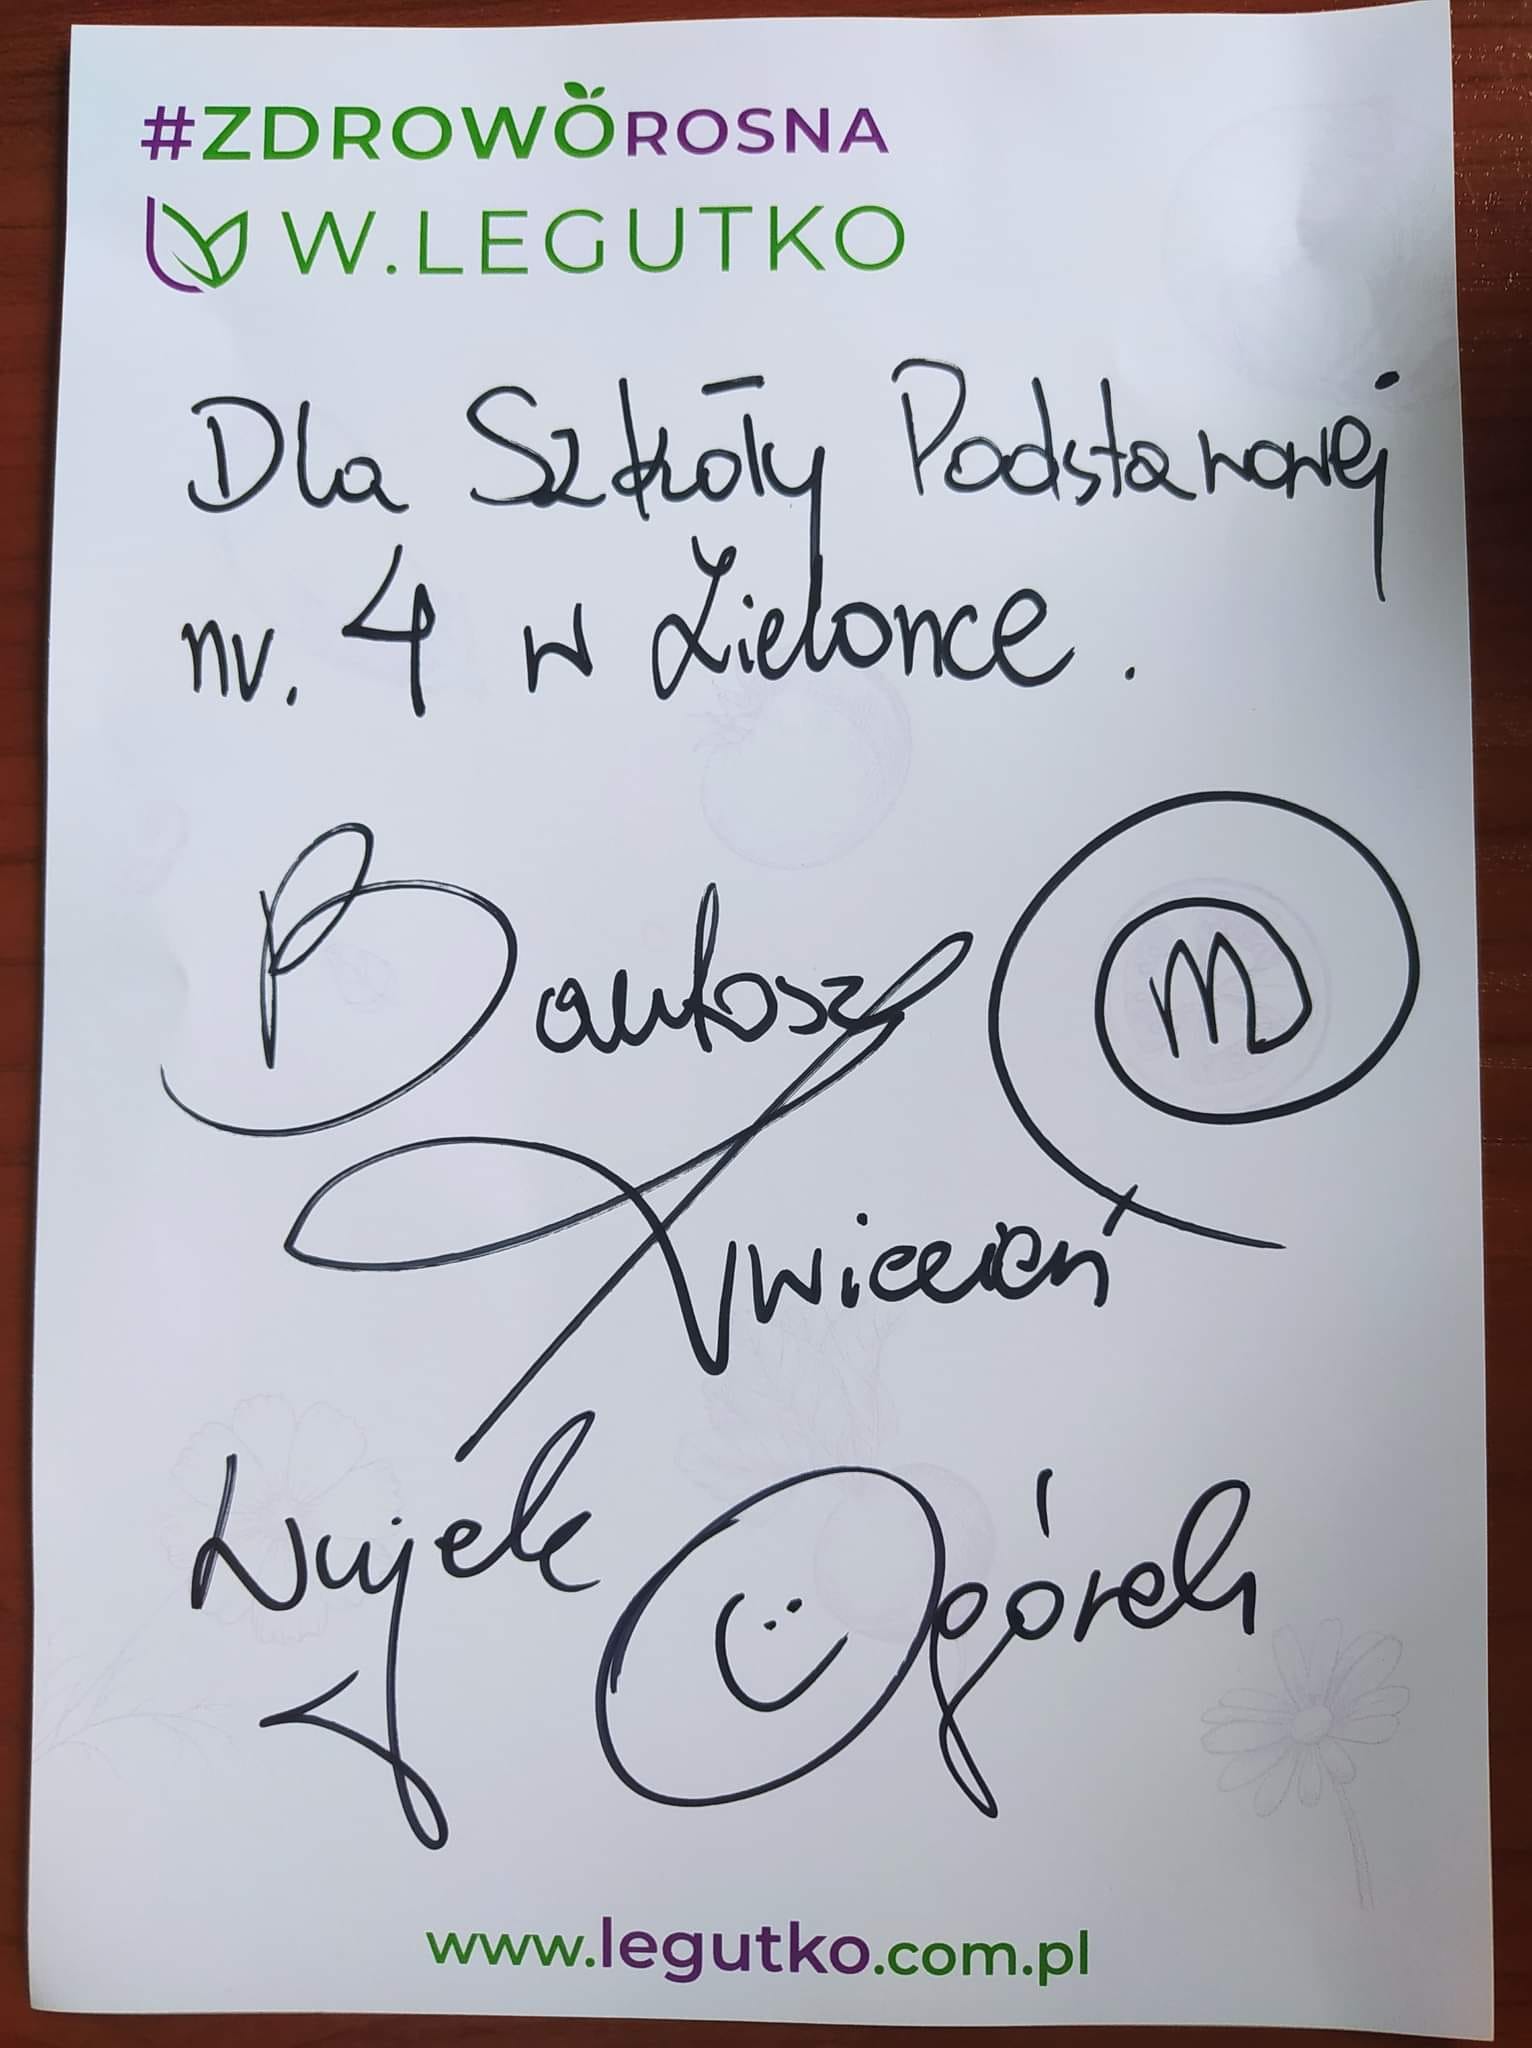 #ZDROWOROSNA
W.LEGUTKO
Dla Szkoły Podstawowej
nr. 4 w Zielonce.
Bartosz
m
Kwiecień
Wujek Ogórek
www.legutko.com.pl